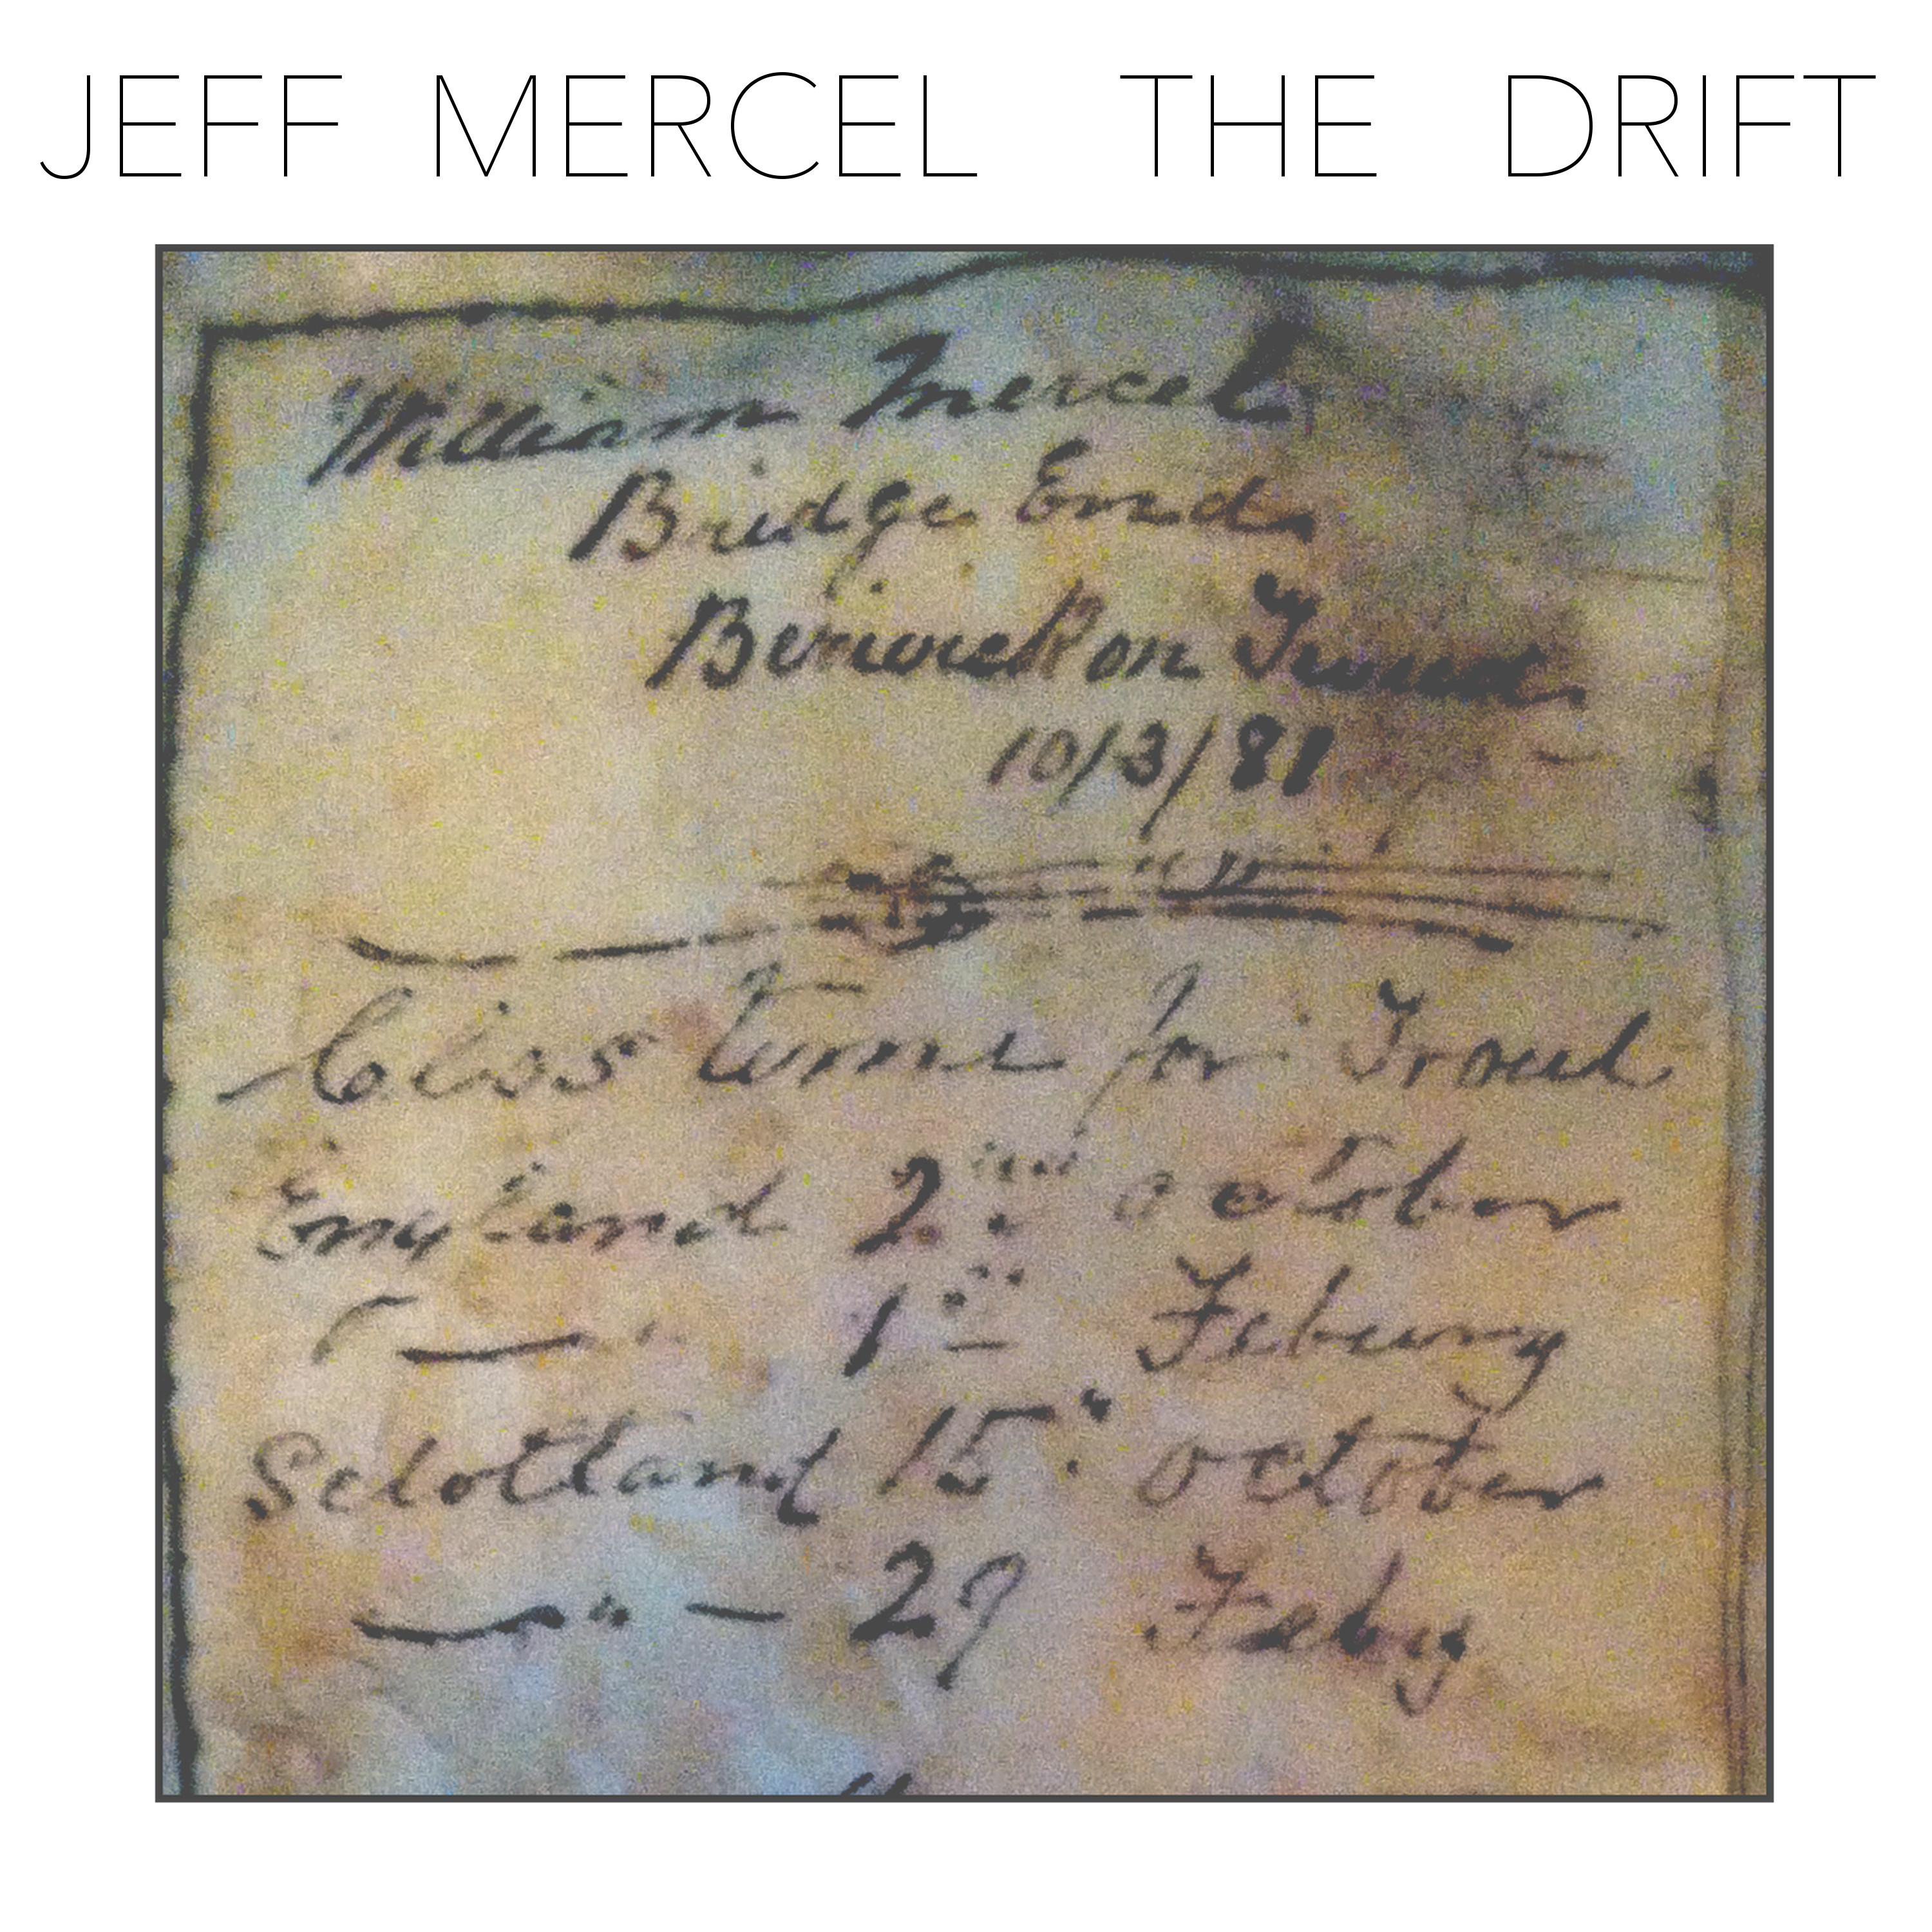 JEFF MERCEL THE DRIFT
William Mercel
Bridge End
Berwick on Tweed
10/3/81
Closs time for Trout
England 2nd October
1 Feburry
Sclotland 15 October
" 29 Feby